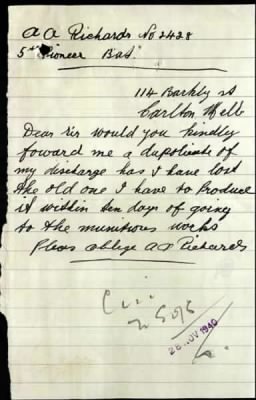 A A Richards No 2428
5th Pioneer Bat
114 Barkly st
Carlton Melb
Dear Sir would you kindley
foward me a dupolicate of
my discharge has I have lost
the old one I have to produce
it within ten days of going
to the munitious works
Pleas oblige A A Richards
28 NOV 1940